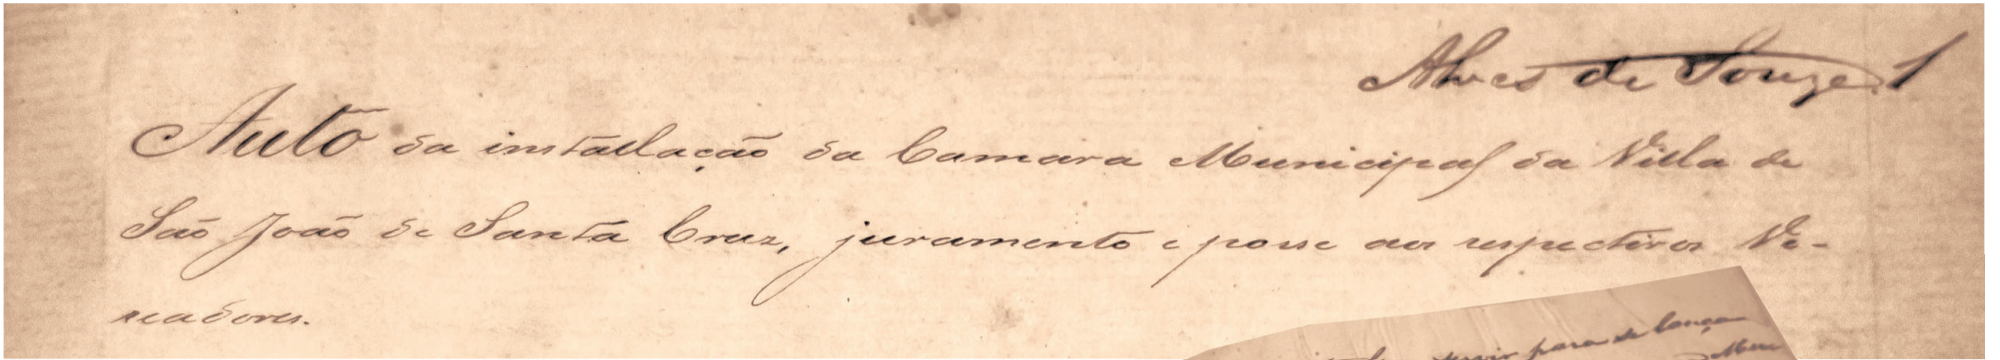 Alves de Souza. 1
Auto da installação da Camara Municipal da Villa de
São João de Santa Cruz, juramento e posse aos respectivos Ve-
readores.
servir para se lança
Mun